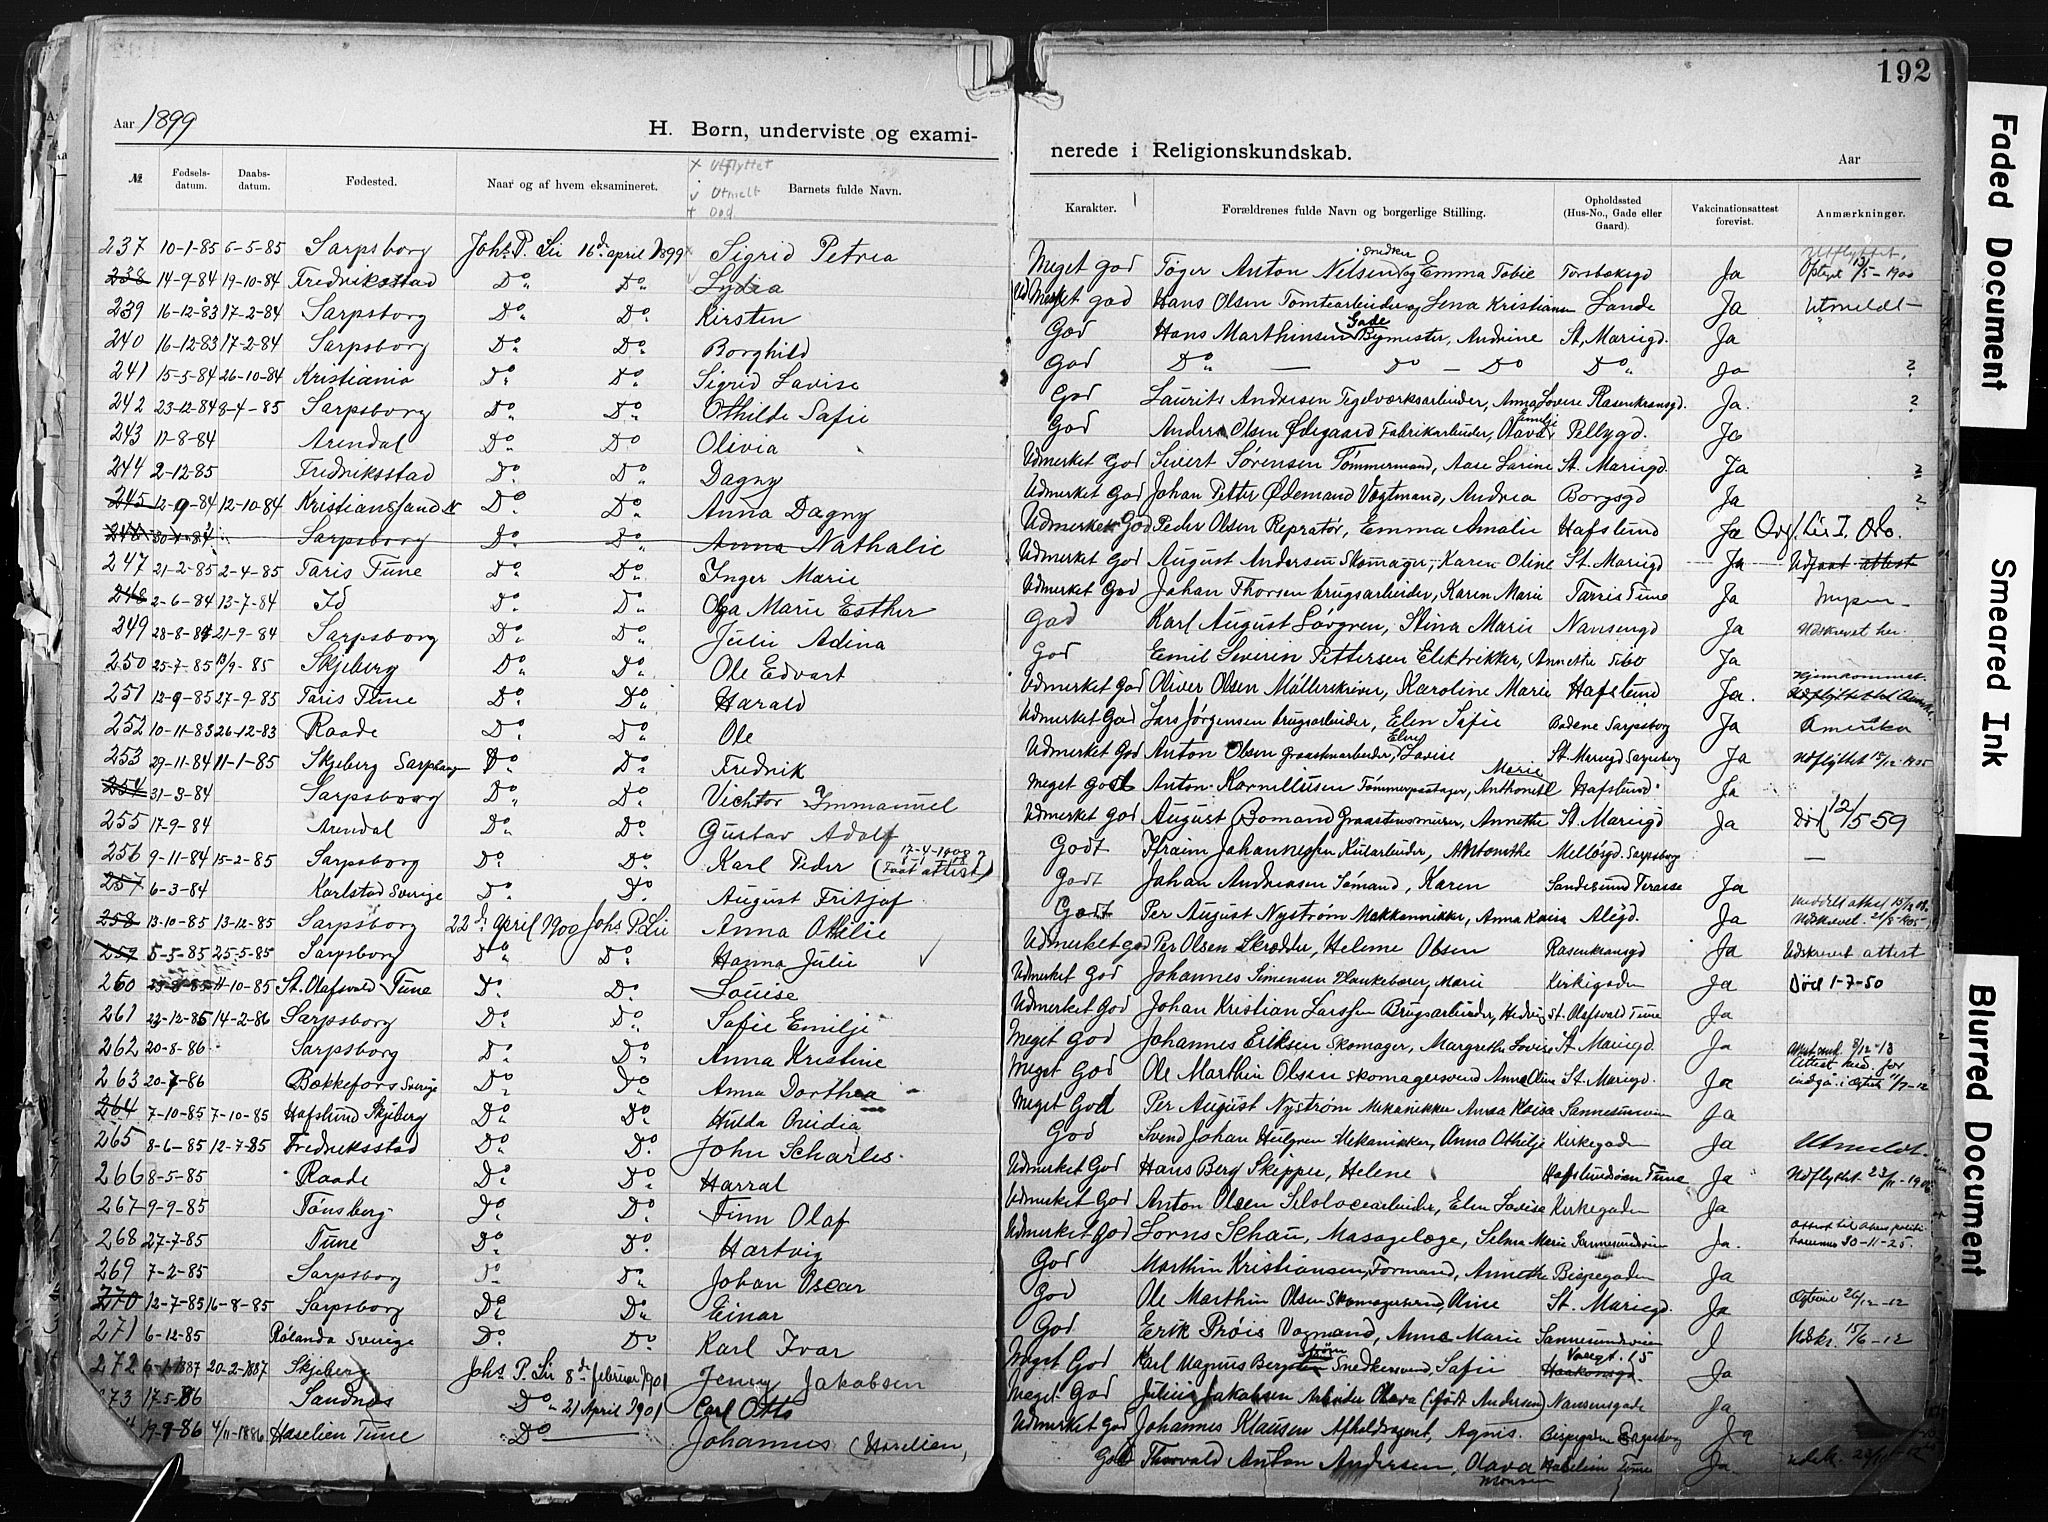 192
Aar 1899
H. Børn, underviste og exami-
nerede i Religionskundskab.
Aar
№ Fødsels-datum. Daabs-datum. Fødested. Naar og af hvem eksamineret. Barnets fulde Navn.
× Utflyttet
√ Utmelt
+ Død
Karakter. Forældrenes fulde Navn og borgerlige Stilling. Opholdssted (Hus-No., Gade eller Gaard). Vaccinationsattest forevist. Anmærkninger.
237 10-1-85 6-5-85 Sarpsborg Johs. P. Lie 16d april 1899 Sigrid Petrea
238 14-9-84 19-10-84 Fredriksstad Do Do Lydia
239 16-12-83 17-2-84 Sarpsborg Do Do Kirsten
240 16-12-83 17-2-84 Sarpsborg Do Do Borghild
241 15-5-84 26-10-84 Kristiania Do Do Sigrid Lovise
242 23-12-84 8-4-85 Sarpsborg Do Do Othilde Safie
243 17-8-84 Arendal Do Do Olivia
244 2-12-85 Fredriksstad Do Do Dagny
245 12-9-84 12-10-84 Kristianssand N Do Do Anna Dagny
Sarpsborg Do Do Anna Nathalie
247 21-2-85 2-4-85 Taris Tune Do Do Inger Marie
248 2-6-84 13-7-84 Id Do Do Olga Marie Esther
249 28-8-84 21-9-84 Sarpsborg Do Do Julie Adina
250 25-7-85 13/9-85 Skjeberg Do Do Ole Edvart
251 12-9-85 27-9-85 Taris Tune Do Do Harald
252 10-11-83 26-12-83 Raade Do Do Ole
253 29-11-84 11-1-85 Skjeberg Do Do Fredrik
254 31-3-84 Sarpsborg Do Do Vichtor Immanuel
255 17-9-84 Arendal Do Do Gustav Adolf
256 9-11-84 15-2-85 Sarpsborg Do Do Karl Peder
257 6-3-84 Karlstad Sverige Do Do August Fritjof
258 13-10-85 13-12-85 Sarpsborg 22d april 1900 Johs. P. Lie Anna Othilie
259 5-5-85 25-5-85 Sarpsborg Do Do Hanna Julie √
260 11-10-85 St. Olafsvold Tune Do Do Louise
261 14-2-86 Sarpsborg Do Do Safie Emilje
262 20-8-86 Sarpsborg Do Do Anna Kristine
263 20-7-86 Bækkefors Sverige Do Do Anna Dorthea
264 7-10-85 7-10-85 Hafslund Skjeberg Do Do Hulda
265 8-6-85 12-7-85 Fredriksstad Do Do John Scharles
266 8-5-85 Raade Do Do Harral
267 9-9-85 Tønsberg Do Do Finn Olaf
268 27-7-85 Tune Do Do Hartvig
269 7-2-85 Sarpsborg Do Do Johan Oscar
270 12-7-85 16-8-85 Sarpsborg Do Do Einar
271 6-12-85 Rølanda Sverige Do Do Karl Ivar
272 20-2-1887 Skjeberg Johs. P. Lie 8de februar 1901 Jenny Jakobsen
73 17-5-86 Sandnes Do 21 April 1901 Carl Otto
4/11-1886 Haselien Tune Do Johannes (Haselien,
Meget God Tøger Anton Nelsen snedker og Emma Tobie Torsbæksgd Ja Utflyttet.
Meget god Hans Olsen Tomtearbeider og Lena Kristiansen Lande Ja Utmeldt
God Hans Marthinsen Gade Bymester, Andrine St. Mariegd. Ja
God Do — Do — Do Do Ja ?
God Laurits Andresen Tegelværksarbeider, Anna Lovise Rosenkransgd. Ja. ?
God Anders Olsen Ødegaard Fabrikarbeider, Olava Emilje Pellygd. Ja
Udmerket God Sivert Sørensen Tømmermand, Aase Larine St. Mariegd. Ja ?
Udmerket God Johan Petter Ødemand Vogtmand, Andrea Borgsgd Ja ?
Udmerket God Peder Olsen Repratør, Emma Amalie Hafslund Ja
Udmerket God August Andersen Skomager, Karen Oline St. Mariegd Ja Udfaat attest
Udmerket God Johan Thorsen brugsarbeider, Karen Marie Tarris Tune Ja
God Karl August Løvgren, Stina Marie Nansengd Ja Udskrevet her.
God Emil Severen Pettersen Elektrikker, Annethe Tibo Ja
Udmerket God Oliver Olsen Møllerskriver, Karoline Marie Hafslund Ja. Hjemkommet.
Udmerket God Lars Jørgensen brugsarbeider, Elen Safie Bodene Sarpsborg Ja Amerika
Udmerket God Anton Olsen Lovise St. Mariegd Sarpsborg Ja Udflyttet 12/12-1905
Meget God Anton Kornellusen Marie Hafslund Ja
Udmerket God August Bomand Annethe St. Mariegd Ja Død 12/5 59
Godt Efraim Johannessen Mellosgd. Sarpsborg —
Godt Johan Andreasen Sømand, Karen Sandesund Terasse Ja
Godt Per August Nystrøm Mekkanikker, Anna Kaisa Alegd. Ja
Udmerket god Per Olsen Skrædder, Helene Olsen Rosenkransgd Ja Udskrevet attest
Udmerket God Johannes Simensen Plankebærer, Marie Kirkegaden Ja Død 1-7-50
Udmerket God Johan Kristian Larssen Brugsarbeider, Hedvig St. Olafsvold Tune Ja
Meget God Johannes Eriksen Skomager, Margrethe Lovise St. Mariegd. Ja
Meget God Ole Marthin Olsen Skomagersvend Anna Oline St. Mariegd. Ja
Meget God Per August Nystrøm Mekanikker Anna Kaisa Sannesundveien Ja
God Svend Johan Hulgren Mekanikker, Anna Othilje Kirkegaden Ja Utmeldt.
Udmerket God Hans Berg Skipper, Helene Hafslundsøen Tune Ja Udflyttet 23/11-1906
Udmerket God Anton Olsen Elen Lovise Kirkegaden Ja
Udmerket God Lorns Schau, Masagelæge, Selma Marie Sannesundveien Ja. 30-11-25.
God Marthin Kristiansen, Formand, Annethe Bispegaden Ja
God Ole Marthin Olsen Skomagersvend, Oline St. Mariegd. Ja 26/12-12
God Erik Prøis Vogmand, Anne Marie Sannesundveien Udskr. 15/6-12
Meget God Karl Magnus Snedkersvend, Safie Haakonsgd. Ja
Meget God Julius Jakobsen Arbeider Olava (født Andersen) Nansensgade Ja
Udmerket God Johannes Klausen Afholdsagent, Agnes. Bispegaden Sarpsborg Ja
God Thorvald Anton Andersen, Olava Monsen Haselien Tune Ja.
Faded Document
Smeared Ink
Blurred Document